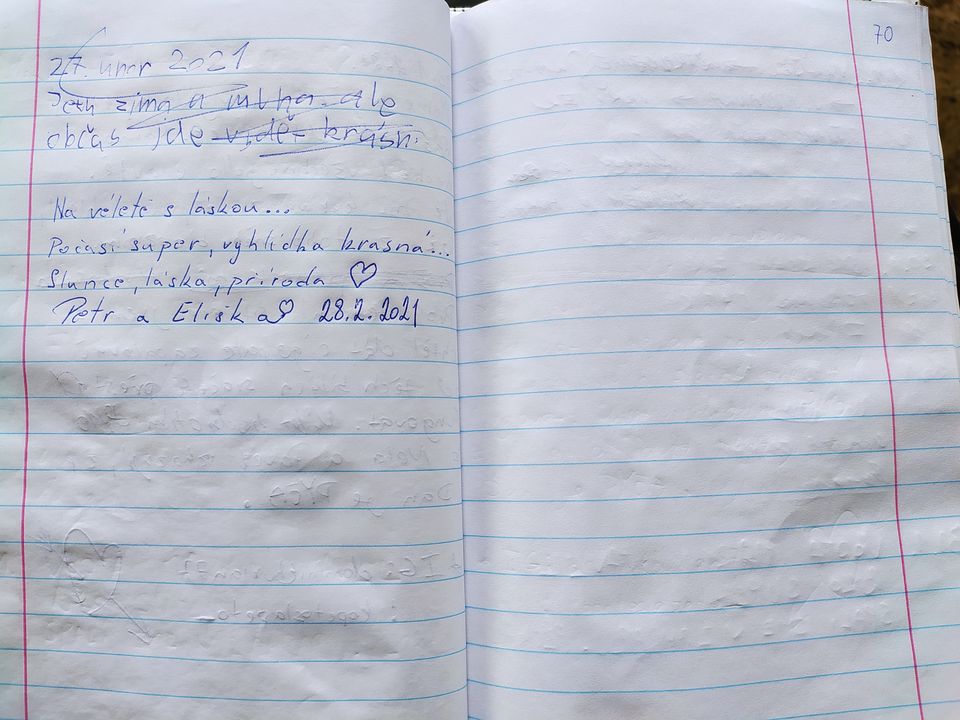 27. únor 2021
zima a mlha. ale
občas jde vidět krásn
Na véletě s láskou...
Počasí super, vyhlídka krasná...
Slunce, láska, príroda ♡
Petr a Eliška♡ 28.2.2021
70